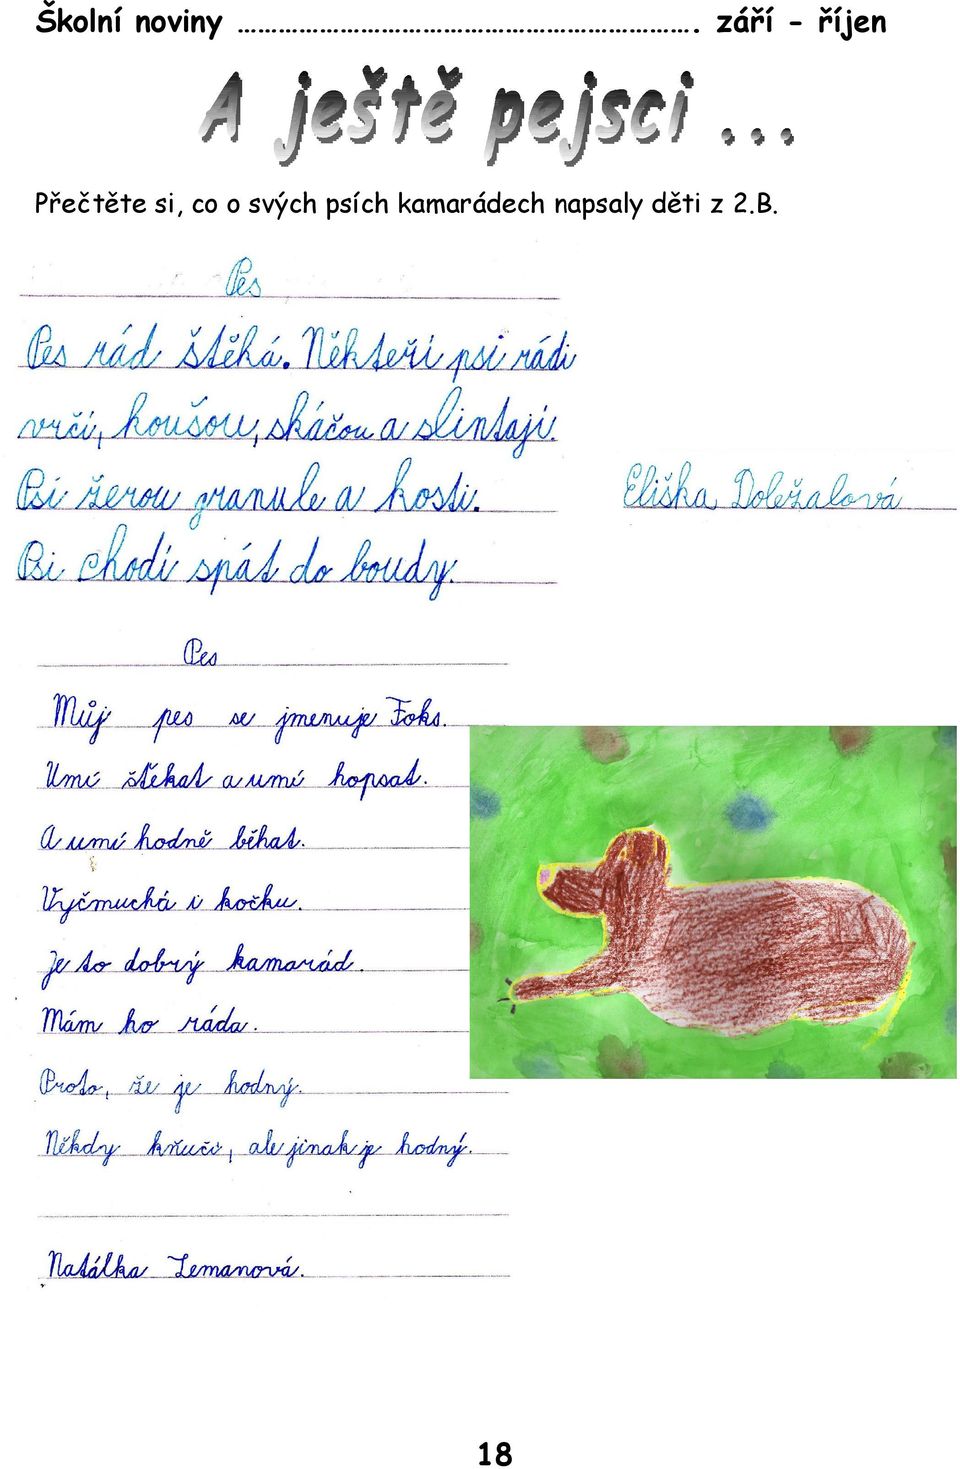 Školní noviny ………………………………………………………………. září - říjen
A ještě pejsci ...
Přečtěte si, co o svých psích kamarádech napsaly děti z 2.B.
Pes
Pes rád štěká. Někteří psi rádi
vrčí, koušou, skáčou a slintají.
Psi žerou granule a kosti.
Eliška Doležalová
Psi chodí spát do boudy.
Pes
Můj pes se jmenuje Foks.
Umí štěkat a umí hopsat.
A umí hodně běhat.
Vyčmuchá i kočku.
Je to dobrý kamarád.
Mám ho ráda.
Proto, že je hodný.
Někdy kňučí, ale jinak je hodný.
Natálka Zemanová.
18